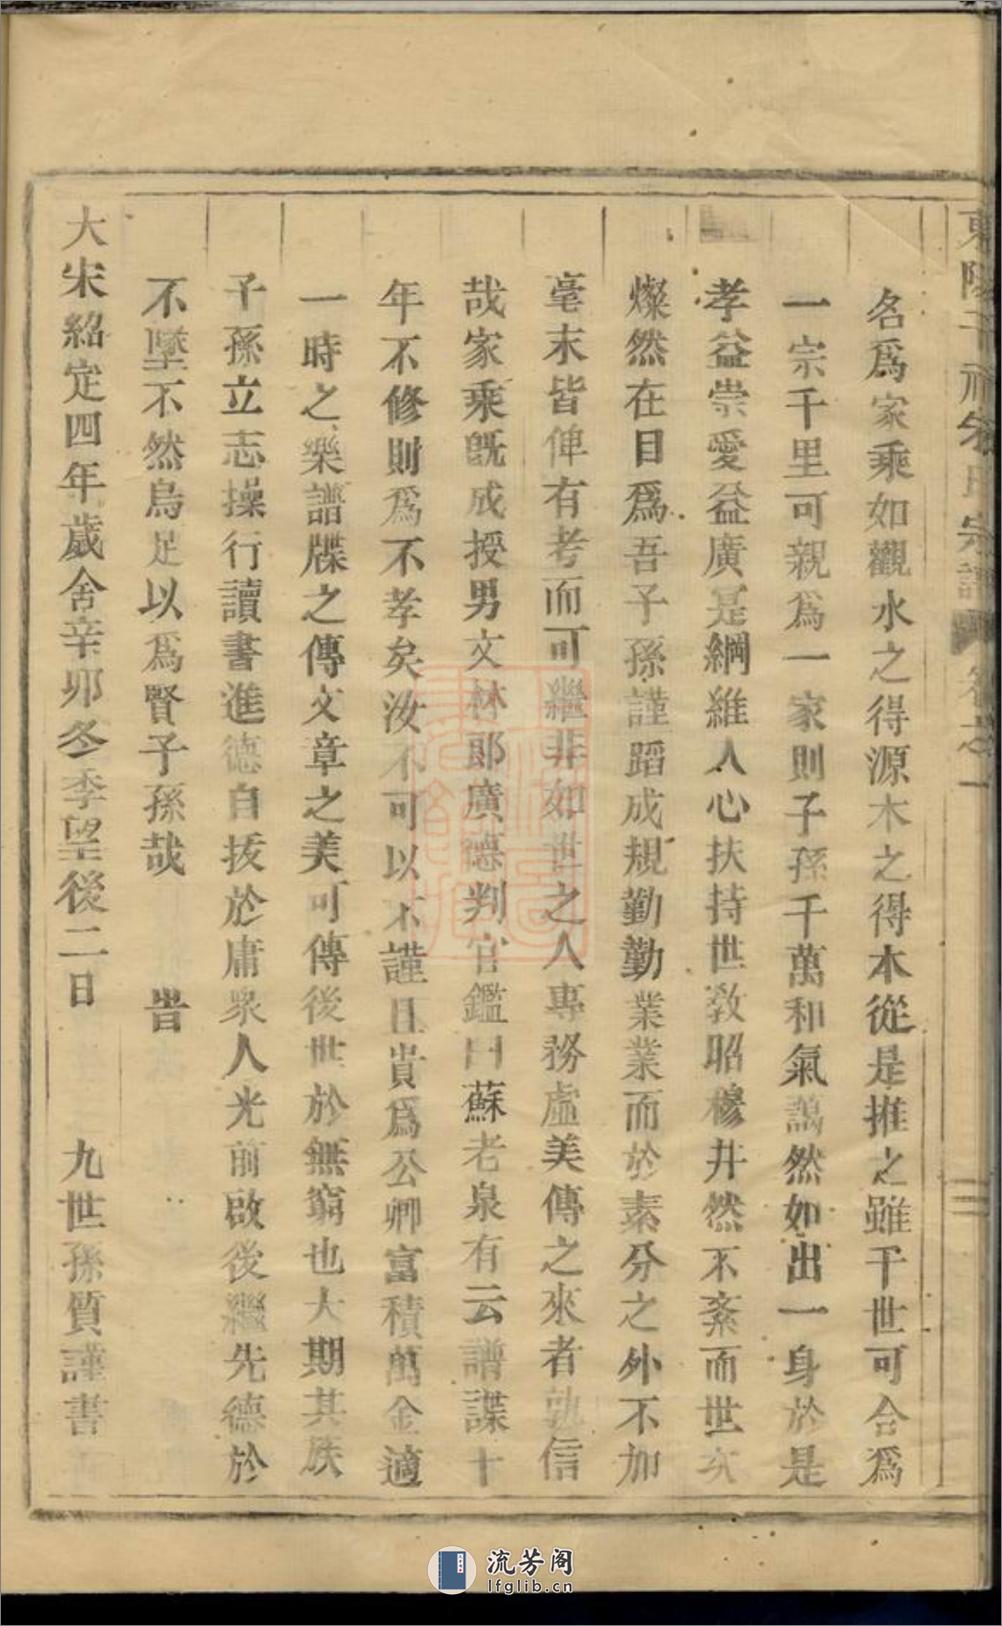 名爲家乘如觀水之得源木之得本從是推之雖千世可合爲
一宗千里可親爲一家則子孫千萬和氣藹然如出一身於是
孝益崇愛益廣是綱維人心扶持世敎昭穆井然不紊而世次
燦然在目爲吾子孫謹蹈成規勤勤業業而於素分之外不加
毫末皆俾有考而可繼非如世之人專務虛美傳之來者孰信
哉家乘旣成授男文林郞廣德判官鑑曰蘇老泉有云譜諜十
年不修則爲不孝矣汝不可以不謹且貴爲公卿富積萬金適
一時之樂譜牒之傳文章之美可傳後世於無窮也大期其族
子孫立志操行讀書進德自拔於庸衆人光前啟後繼先德於
不墜不然烏足以爲賢子孫哉 旹
大宋紹定四年歲舍辛卯冬季望後二日 九世孫質謹書
流芳阁
lfglib.cn